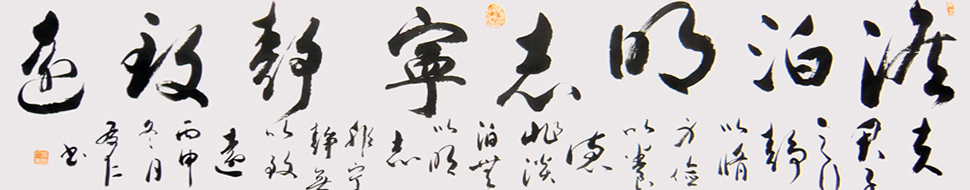 澹泊明志寧靜致遠
夫
君子
之行
靜
以脩
身儉
以養
德
非淡
泊無
以明
志
非寧
靜無
以致
遠
丙申
冬月
书